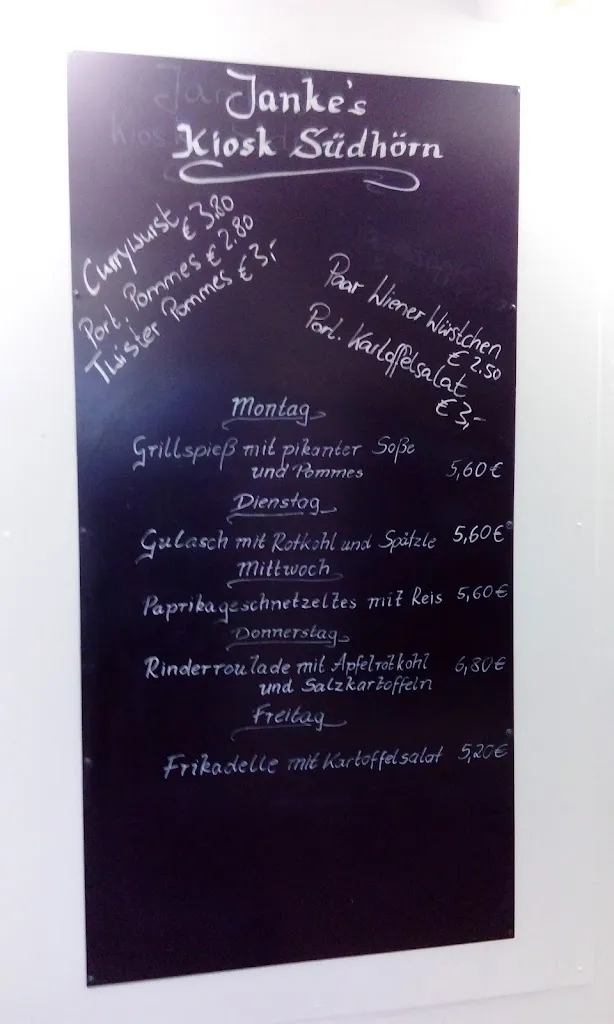 Janke's
Kiosk Südhörn
Currywurst € 3,80
Port. Pommes € 2.80
Twister Pommes € 3,-
Paar Wiener Würstchen
€ 2.50
Port. Kartoffelsalat
€ 3,-
Montag
Grillspieß mit pikanter Soße
und Pommes 5,60 €
Dienstag
Gulasch mit Rotkohl und Spätzle 5,60 €
Mittwoch
Paprikageschnetzeltes mit Reis 5,60 €
Donnerstag
Rinderroulade mit Apfelrotkohl 6,80 €
und Salzkartoffeln
Freitag
Frikadelle mit Kartoffelsalat 5,20 €